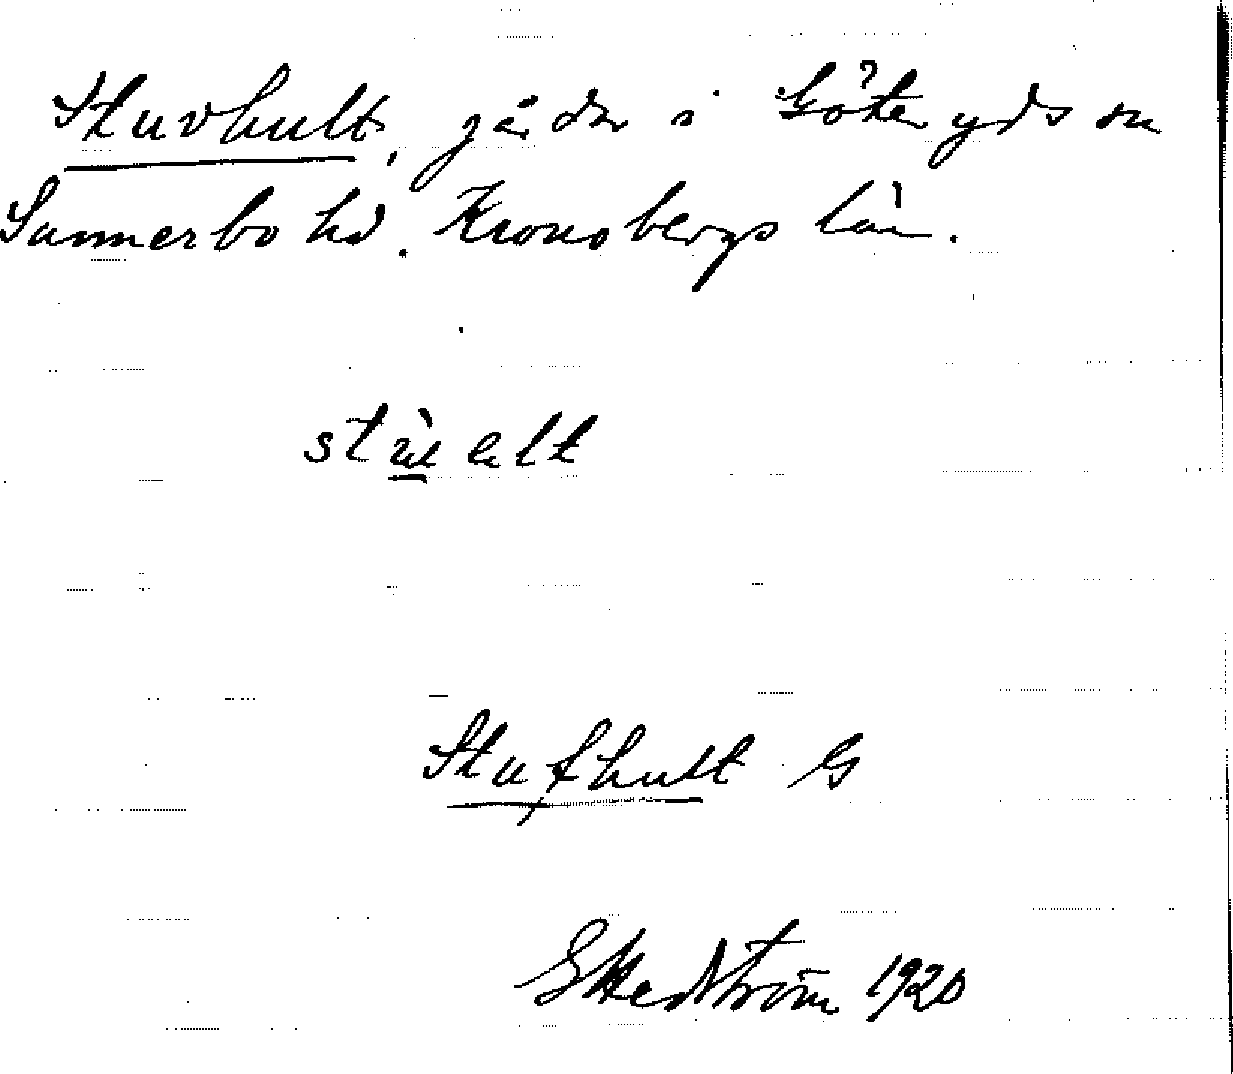 Stuvhult, gårdar i Göteryds sn
Sunnerbo hd. Kronobergs län.
Stufhult G
Hedström 1920